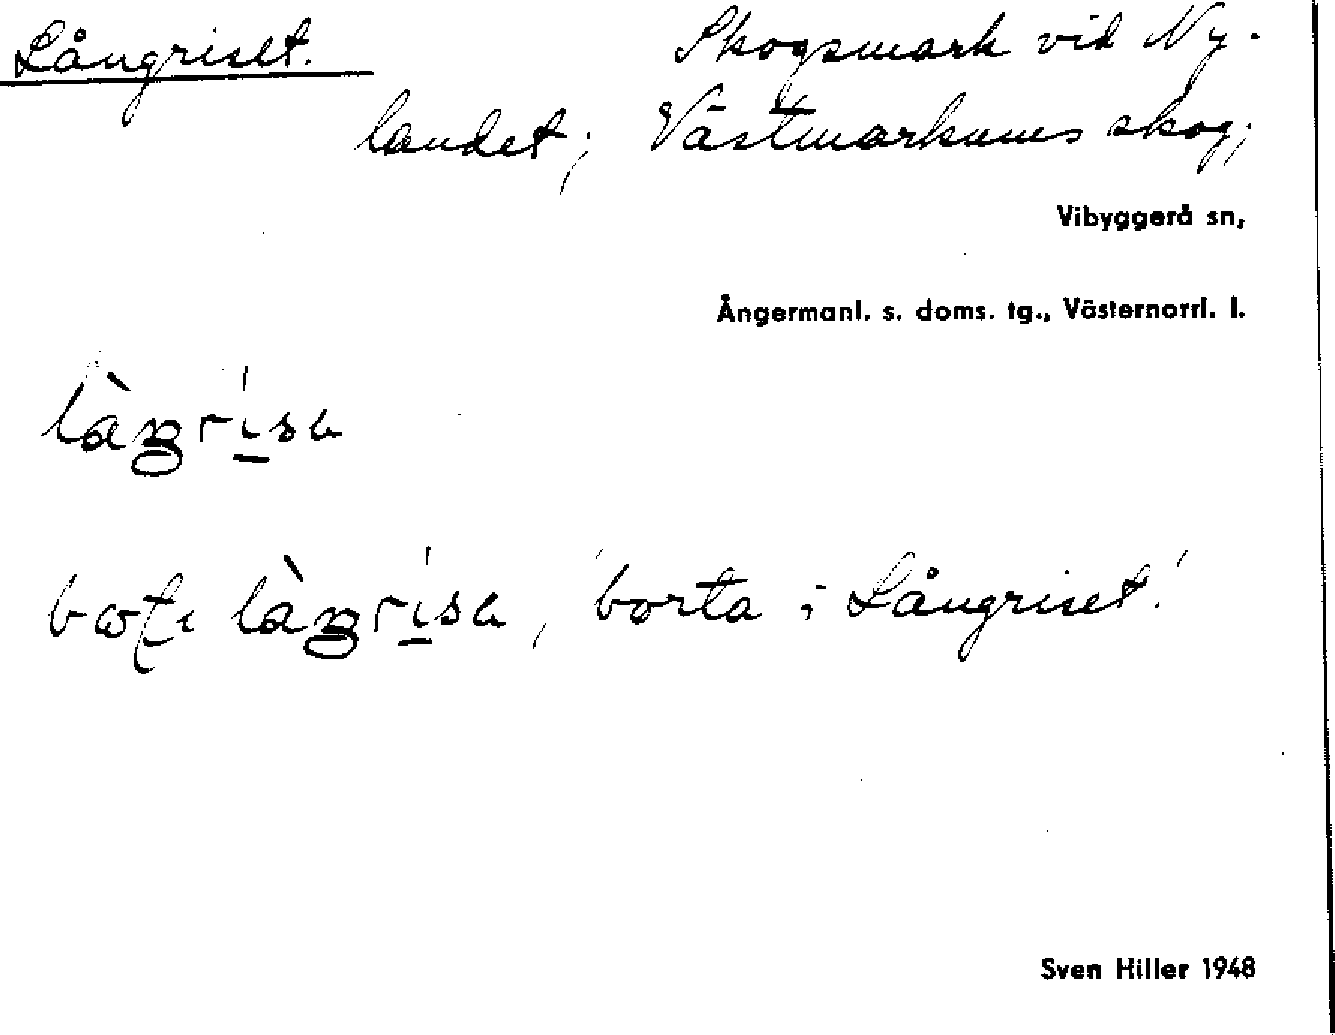 Långriset. Skogsmark vid Ny-
landet; Västmarkums skog;
Vibyggerå sn,
Ångermanl. s. doms. tg., Västernorrl. l.
borta i Långriset!
Sven Hiller 1948